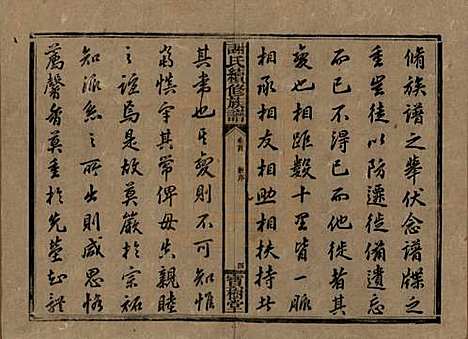 脩族譜之舉伏念譜牒之
重豈徒以防遷徙備遺忘
而已不得已而他徙者其
變也相距數十里皆一脈
相承相友相助相扶持此
謝氏續修族譜
卷首 新序
四
寶樹堂
其常也其變則不可知惟
兢慎守其常俾毋失親睦
之誼焉是故莫嚴於宗祏
知派系之所出則咸思恪
薦馨香莫重於先塋知體